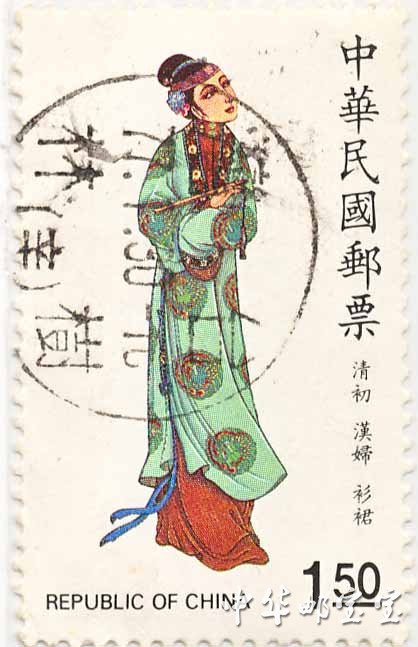 中華民國郵票
清初 漢婦 衫裙
樹
林(幸)
REPUBLIC OF CHINA
1.50
中华邮宝宝